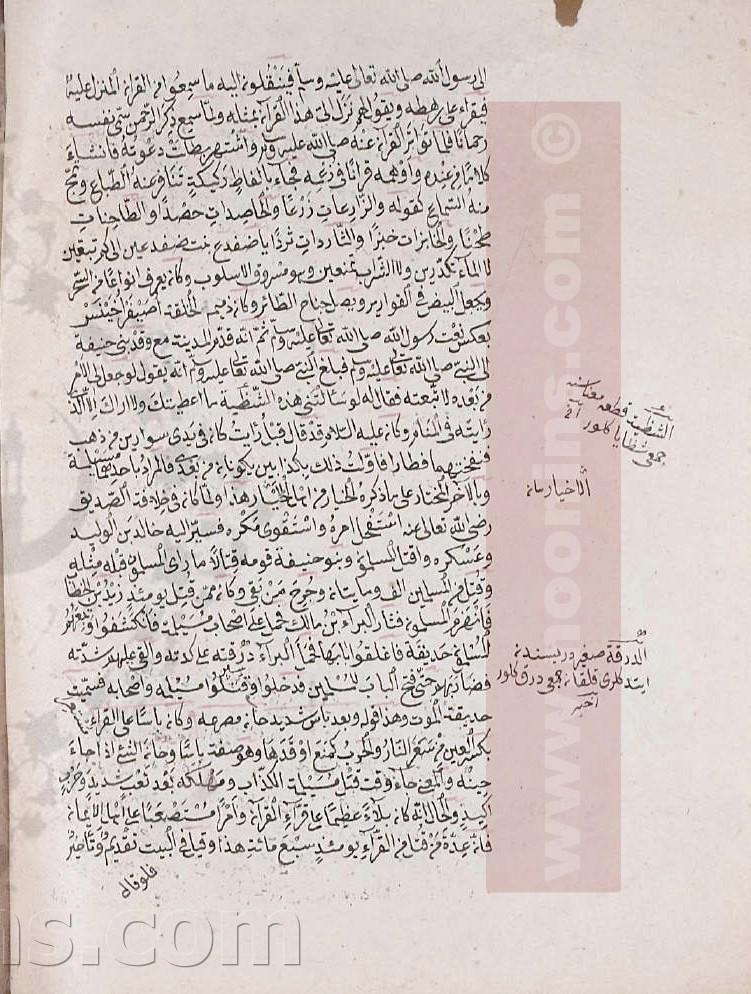 الى رسول الله صلى الله تعالى عليه وسلم فينقلونه اليه ما سمعوا من القرآن المنزل عليه
فيقراء على رهطه ويقول لهم نزل الىّ هذا القرآن بمثله ولما سمع ذكر الرحمن سمى نفسه
رحمانا فلما تواتر القرآن عنه صلى الله عليه وسلم واشتهر بطلت دعوته فانشاء
كلاما من عنده واوهمه قرانا فى زعمه فجاء بالفاظ ركيكة تنافر عنه الطباع وتمج
منه السماع كقوله والزارعات زرعا والحاصدات حصدا والطاحنات
طحنا والخابزات خبزا والثاردات ثردا يا ضفدع بنت ضفدعين الى كم تنقين
لا الماء تكدرين ولا الشراب تمنعين وهو مسروق الاسلوب وكان يعرف انواعا من السحر
ويجعل البيض فى القوارير ويصل جناح الطائر وكان ذميم الخلقة اصيفر اخينس
بعكس نعت رسول الله صلى الله تعالى عليه وسلم ثم انه قدم المدينة مع وفد بنى حنيفة
الى النبى صلى الله تعالى عليه وسلم فبلغ النبى صلى الله تعالى عليه وسلم انه يقول لو جعل لى الامر
من بعده لاتبعته فقال له لو سالتنى هذه الشظية ما اعطيتك ولا اراك الا الذى
رايته فى المنام وكان عليه السلام قد قال فيما رايت كان فى يدى سوارين من ذهب
فنفختهما فطارا فاولت ذلك بكذابين يكونان من بعدى فالمراد باحدهما مسيلمة
وبالآخر المختار على ما ذكره الخيار من ائمة الاخيار هذا ولما كان فى خلافة الصديق
رضى الله تعالى عنه استفحل امره واستقوى مكره فسير اليه خالد بن الوليد
وعسكره واقتتل المسلمون وبنو حنيفة قومه قتالا ما راى المسلمون قبله مثله
وقتل من المسلمين الف ومايتان وجرح من بقى وكان ممن قتل يومئذ زيد بن الخطاب
فانهزم المسلمون فثار البراء بن مالك فحمل على اصحاب مسيلمة فانكشفوا وتبعهم
المسلمون حديقة فاغلقوا بابها فحمل البراء درقته على كدته والقى عليهم شدته
فضاربهم حتى فتح الباب للمسلمين فدخلوا وقتلوا مسيلمة واصحابه فسميت
حديقة الموت وهذا قوله وبعد باس شديد حان مصرعه وكان باسا على القراء
بكسر العين من سعر النار والحرب كمنع اوقدها وهو صفة باسا وحان الشئ اذا جاء
حينه والمعنى جاء وقت قتل مسيلمة الكذاب ومهلكه بعد تعب شديد وحرب
اكيد والحال انه كان بلاء عظيما على قراء القرآن وامرا مستصعبا على اهل الايمان
فان عدة من قتل من القراء يومئذ سبع مائة هذا وقيل فى البيت تقديم وتاخير
فلو قال
الشظية قطعه معناسنه
جمعى شظايا كلور
الاخيار
الدرقة صغير دريسندن
ايتدكلرى قلقان جمعى درق كلور
اخير
www.moonins.com ©
ns.com